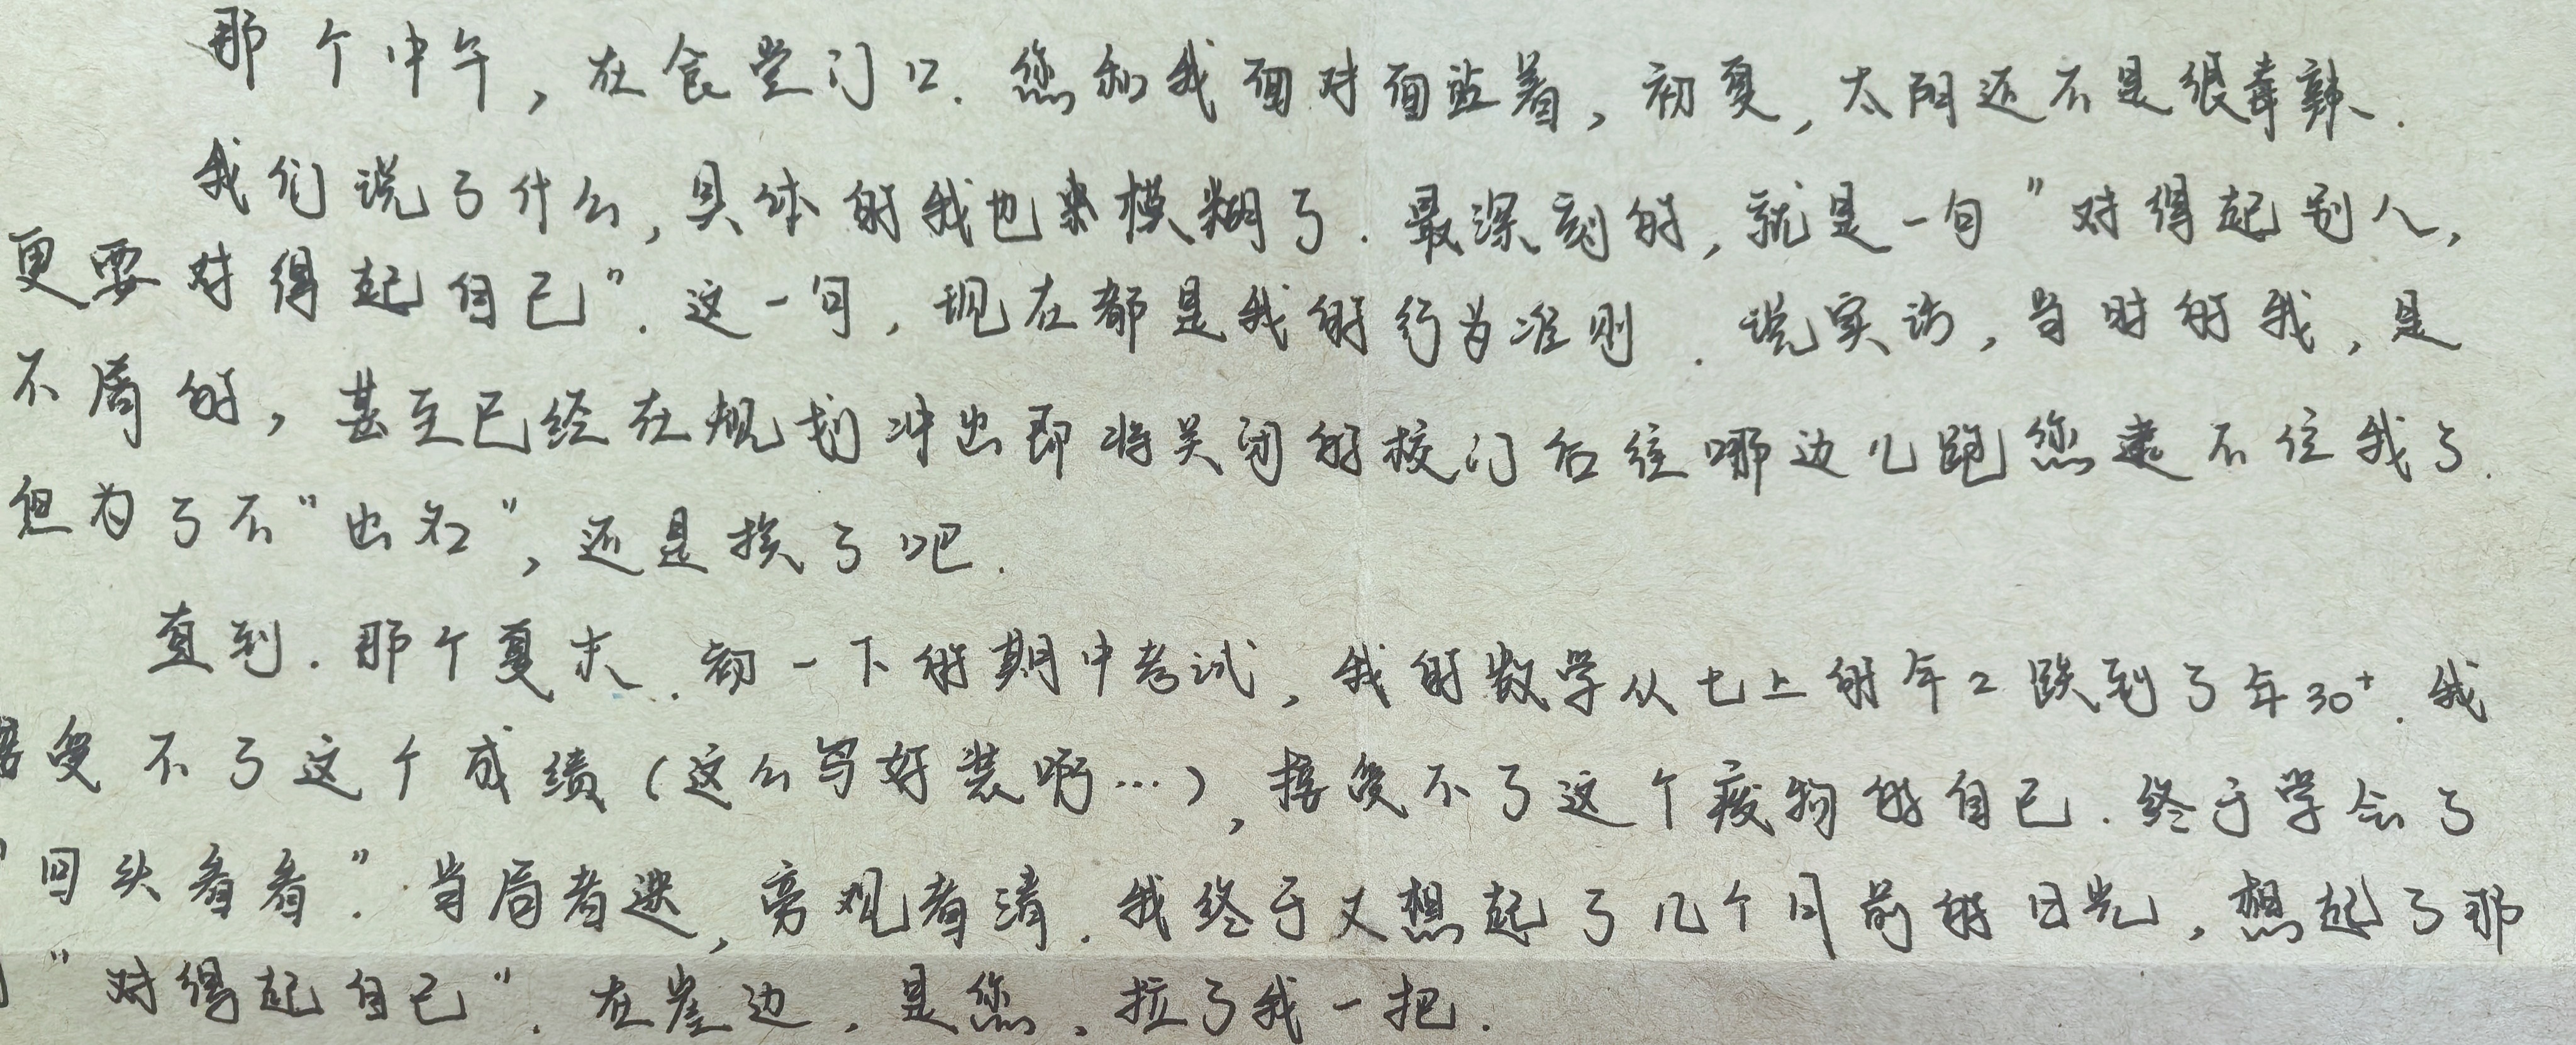 那个中午，在食堂门口.您和我面对面站着，初夏，太阳还不是很毒辣.
我们说了什么，具体的我也模糊了.最深刻的，就是一句"对得起别人，
更要对得起自己".这一句，现在都是我的行为准则.说实话，当时的我，是
不屑的，甚至已经在规划冲出即将关闭的校门后往哪边儿跑您逮不住我了.
但为了不"出名"，还是挨了吧.
直到.那个夏末.初一下的期中考试，我的数学从七上的年2跌到了年30+.我
接受不了这个成绩（这么写好装啊…），接受不了这个废物的自己.终于学会了
"回头看看".当局者迷，旁观者清.我终于又想起了几个月前的日光，想起了那
句"对得起自己".在崖边，是您、拉了我一把.